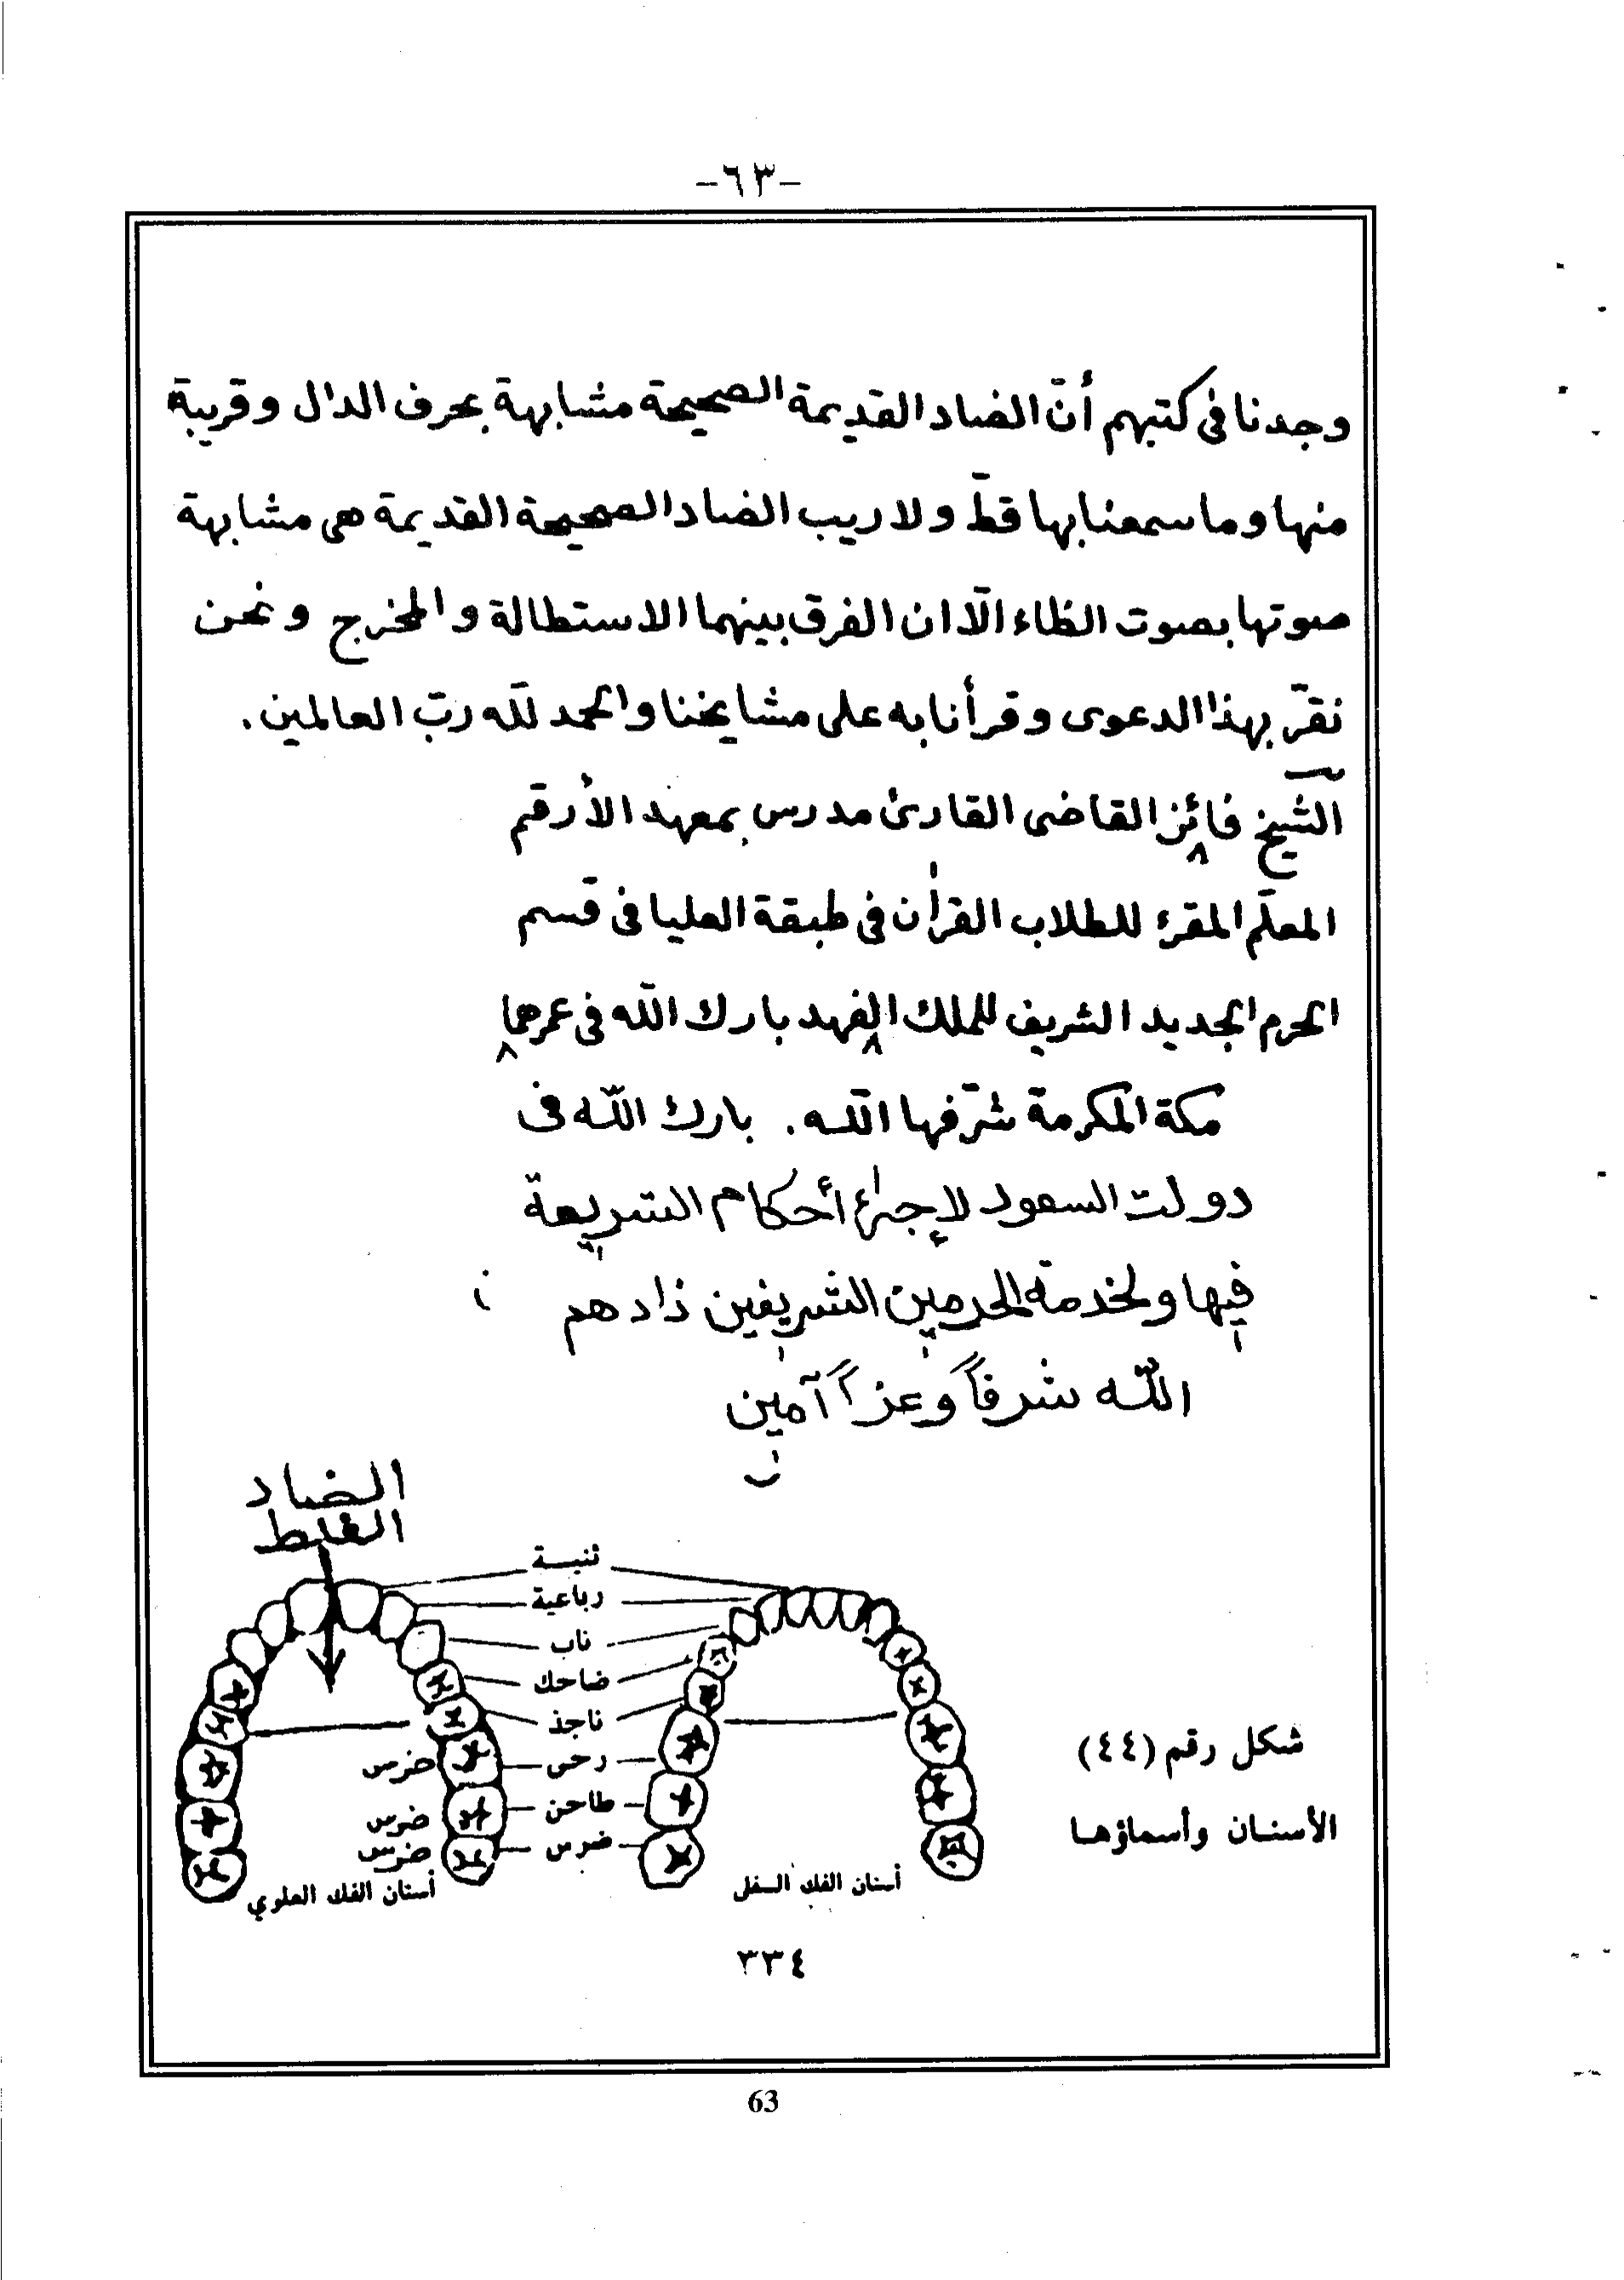 -٦٣-
وجدنا فى كتبهم أنّ الضاد القديمة الصحيحة مشابهة بحرف الدال وقريبة
منها وما سمعنا بها قطّ ولا ريب الضاد الصحيحة القديمة هى مشابهة
صوتها بصوت الظاء الّا ان الفرق بينهما الاستطالة والمخرج ونحن
نقرّ بهذا الدعوى وقرأنا به على مشايخنا والحمد للّه ربّ العالمين.
الشّيخ فائز القاضى القارئ مدرس بمعهد الأرقم
المعلّم المقرئ للطلاب القرآن فى طبقة العليا فى قسم
الحرم الجديد الشريف للملك الفهد بارك اللّه فى عمرهما
مكة المكرمة شرّفها اللّه. بارك اللّه فى
دولت السعود لإجراء أحكام الشريعة
فيها ولخدمة الحرمين الشريفين زادهم
اللّه شرفاً وعزاً آمين
الضاد
الغلط
ثنية
رباعية
ناب
ضاحك
ناجذ
رحى
طاحن
ضرس
ضرس
ضرس
ضرس
أسنان الفك السفل
أسنان الفك العلوي
شكل رقم (٤٤)
الأسنان وأسماؤها
٣٣٤
63